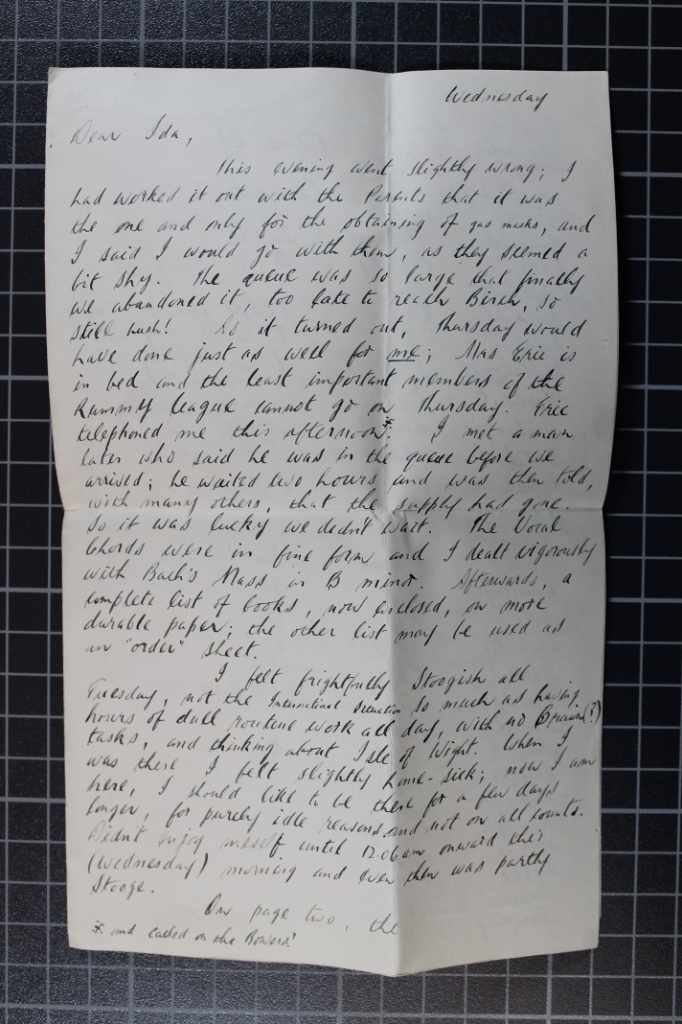 Wednesday
Dear Ida,
This evening went slightly wrong; I
had worked it out with the Parents that it was
the one and only for the obtaining of gas masks, and
I said I would go with them, as they seemed a
bit shy. The queue was so large that finally
we abandoned it, too late to reach Birch, so
still hush! As it turned out, Thursday would
have done just as well for me; Mrs Eric is
in bed and the least important members of the
Rummy league cannot go on Thursday. Eric
telephoned me this afternoon*. I met a man
later who said he was in the queue before we
arrived; he waited two hours and was then told,
with many others, that the supply had gone.
So it was lucky we didn't wait. The Vocal
Chords were in fine form and I dealt vigorously
with Bach's Mass in B minor. Afterwards, a
complete list of books, now enclosed, on more
durable paper; the other list may be used as
an "order" sheet.
I felt frightfully Stoogish all
Tuesday, not the International Situation so much as having
hours of dull routine work all day, with no (?)
tasks, and thinking about Isle of Wight. When I
was there I felt slightly home-sick; now I am
here, I should like to be there for a few days
longer, for purely idle reasons and not on all counts.
Didn't enjoy meself until 12.06am onward this
(Wednesday) morning and even then was partly
Stooge.
On page two, the
* and called on the Bowers!